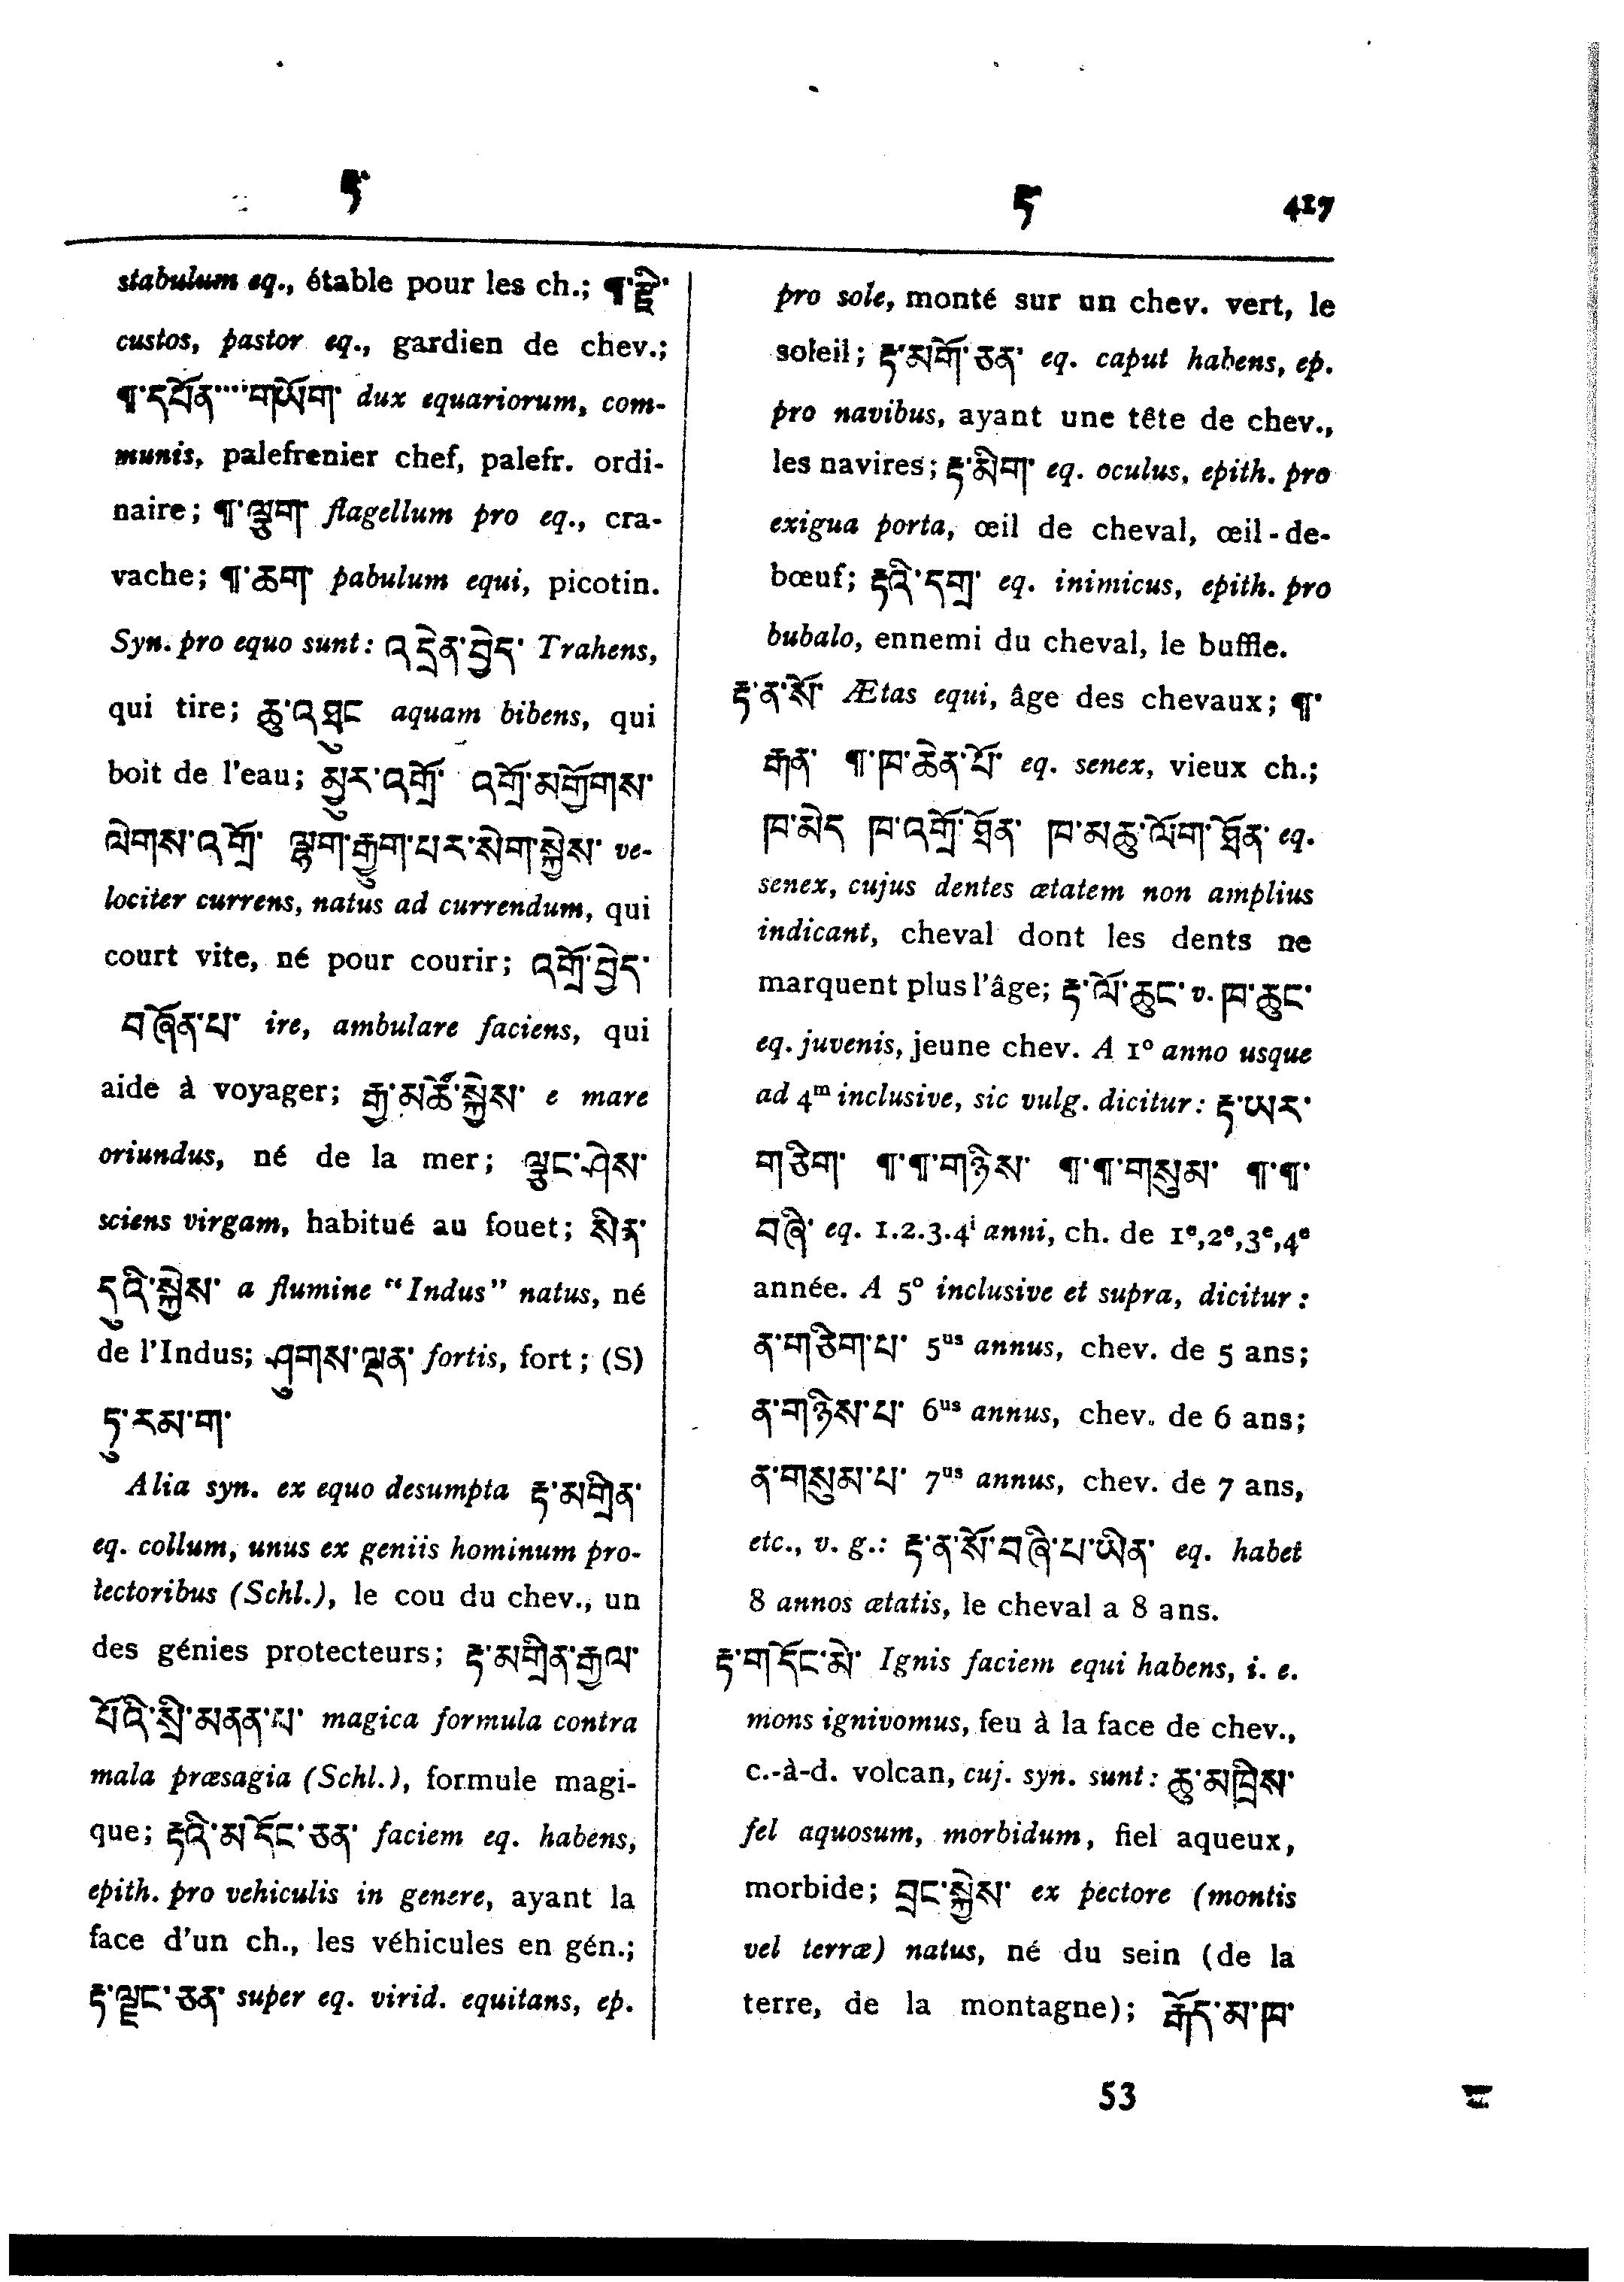 ད ད 417
stabulum eq., étable pour les ch.; ¶་རྫི་
custos, pastor eq., gardien de chev.;
¶་དཔོན་···གཡོག་ dux equariorum, com-
munis, palefrenier chef, palefr. ordi-
naire; ¶་ལྕུག་ flagellum pro eq., cra-
vache; ¶་ཆག་ pabulum equi, picotin.
Syn. pro equo sunt: འདྲེན་བྱེད་ Trahens,
qui tire; ཆུ་འཐུང aquam bibens, qui
boit de l'eau; མྱུར་འགྲོ་ འགྲོ་མགྱོགས་
ལེགས་འགྲོ་ ལྷག་རྒྱུག་པར་སེག་སྐྱེས་ ve-
lociter currens, natus ad currendum, qui
court vite, né pour courir; འགྲོ་བྱེད་
བཞོན་པ་ ire, ambulare faciens, qui
aide à voyager; རྒྱ་མཚོ་སྐྱེས་ e mare
oriundus, né de la mer; ལྕུང་ཤེས་
sciens virgam, habitué au fouet; སིན་
དུའི་སྐྱེས་ a flumine "Indus" natus, né
de l'Indus; ཤུགས་ལྡན་ fortis, fort; (S)
ཏུ་རམ་ག་
Alia syn. ex equo desumpta རྟ་མགྲིན་
eq. collum, unus ex geniis hominum pro-
tectoribus (Schl.), le cou du chev., un
des génies protecteurs; རྟ་མགྲིན་རྒྱལ་
པོའི་སྲི་མནན་པ་ magica formula contra
mala præsagia (Schl.), formule magi-
que; རྟའི་མདོང་ཅན་ faciem eq. habens,
epith. pro vehiculis in genere, ayant la
face d'un ch., les véhicules en gén.;
རྟ་ལྗང་ཅན་ super eq. virid. equitans, ep.
pro sole, monté sur un chev. vert, le
soleil; རྟ་མགོ་ཅན་ eq. caput habens, ep.
pro navibus, ayant une tête de chev.,
les navires; རྟ་མིག་ eq. oculus, epith. pro
exigua porta, œil de cheval, œil-de-
bœuf; རྟའི་དགྲ་ eq. inimicus, epith. pro
bubalo, ennemi du cheval, le buffle.
རྟ་ན་སོ་ Ætas equi, âge des chevaux; ¶་
རྒན་ ¶་ཁ་ཆེན་པོ་ eq. senex, vieux ch.;
ཁ་མེད ཁ་འགྲོ་ཐོན་ ཁ་མཆུ་ལོག་ཐོན་ eq.
senex, cujus dentes ætatem non amplius
indicant, cheval dont les dents ne
marquent plus l'âge; རྟ་ལོ་ཆུང་ v. ཁ་ཆུང་
eq. juvenis, jeune chev. A 1º anno usque
ad 4ᵐ inclusive, sic vulg. dicitur: རྟ་ཡར་
གཅིག་ ¶་¶་གཉིས་ ¶་¶་གསུམ་ ¶་¶་
བཞི་ eq. 1.2.3.4ⁱ anni, ch. de 1ᵉ,2ᵉ,3ᵉ,4ᵉ
année. A 5º inclusive et supra, dicitur:
ན་གཅིག་པ་ 5ᵘˢ annus, chev. de 5 ans;
ན་གཉིས་པ་ 6ᵘˢ annus, chev. de 6 ans;
ན་གསུམ་པ་ 7ᵘˢ annus, chev. de 7 ans,
etc., v. g.: རྟ་ན་སོ་བཞི་པ་ཡིན་ eq. habet
8 annos ætatis, le cheval a 8 ans.
རྟ་གདོང་མེ་ Ignis faciem equi habens, i. e.
mons ignivomus, feu à la face de chev.,
c.-à-d. volcan, cuj. syn. sunt: ཆུ་མཁྲིས་
fel aquosum, morbidum, fiel aqueux,
morbide; བྲང་སྐྱེས་ ex pectore (montis
vel terræ) natus, né du sein (de la
terre, de la montagne); རྒོད་མ་ཁ་
53